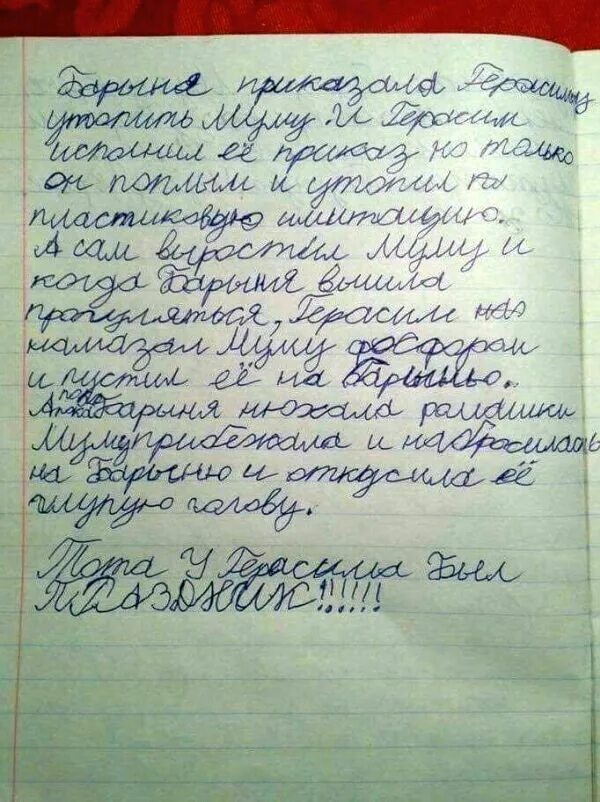 Барыня приказала Герасиму
утопить Муму. И Герасим
исполнил её приказ но только
он поплыл и утопил
пластиковую имитацию.
А сам выростил Муму и
когда Барыня вышла
прогуляться, Герасим
намазал Муму фосфором
и пустил её на Барынью.
А пока Барыня нюхала ромашки
Муму прибежала и набросилась
на Барыню и откусила её
глупую голову.
Тота У Герасима Был
ПРАЗДНИК!!!!!!